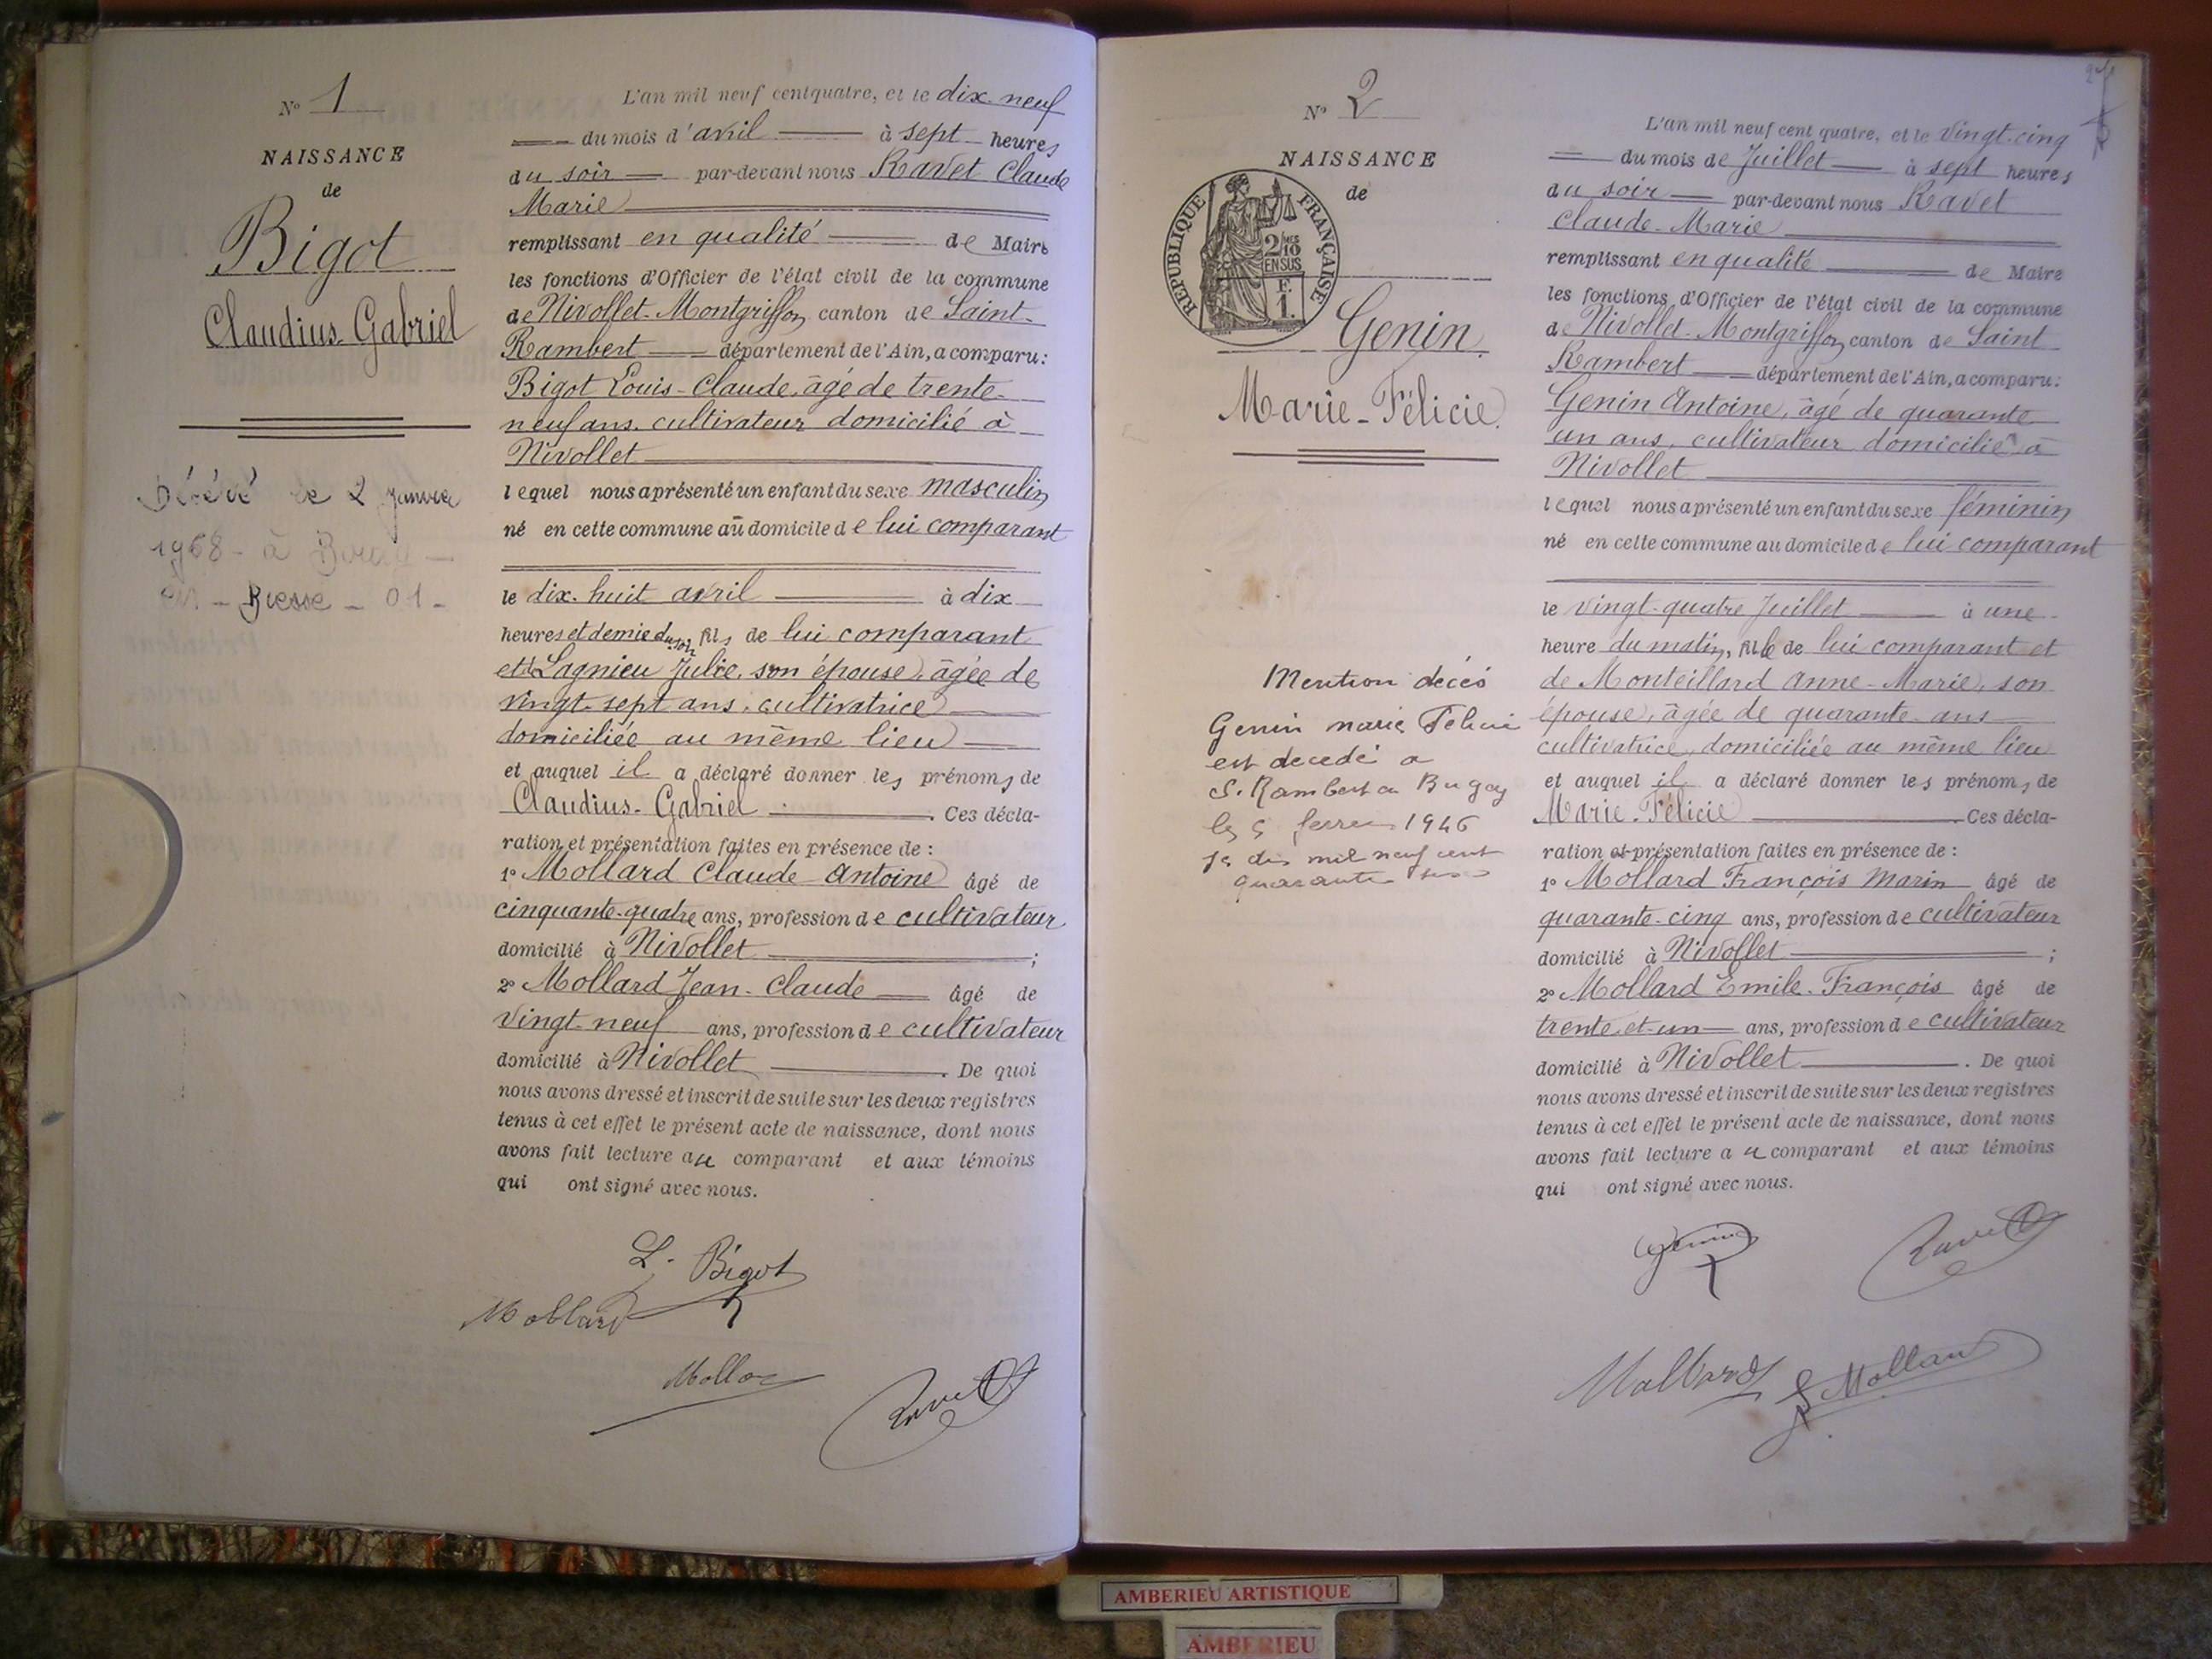 Nº 1
NAISSANCE
de
Bigot
Claudius-Gabriel
Décédé le 2 Janvier
1968 - à Bourg -
en - Bresse - 01 -
L'an mil neuf cent quatre, et le dix-neuf
du mois d'avril à sept heures
du soir par-devant nous Ravet Claude
Marie
remplissant en qualité de Maire
les fonctions d'Officier de l'état civil de la commune
de Nivollet-Montgriffon canton de Saint-
Rambert département de l'Ain, a comparu:
Bigot Louis-Claude, âgé de trente-
neuf ans, cultivateur domicilié à
Nivollet
lequel nous a présenté un enfant du sexe masculin
né en cette commune au domicile de lui comparant
le dix-huit avril à dix
heures et demie du soir, fils de lui comparant
et de Lagnieu Julie, son épouse, âgée de
vingt-sept ans, cultivatrice
domiciliée au même lieu
et auquel il a déclaré donner les prénoms de
Claudius-Gabriel. Ces décla-
ration et présentation faites en présence de :
1º Mollard Claude Antoine âgé de
cinquante-quatre ans, profession de cultivateur
domicilié à Nivollet ;
2º Mollard Jean-Claude âgé de
vingt-neuf ans, profession de cultivateur
domicilié à Nivollet. De quoi
nous avons dressé et inscrit de suite sur les deux registres
tenus à cet effet le présent acte de naissance, dont nous
avons fait lecture au comparant et aux témoins
qui ont signé avec nous.
L. Bigot
Mollard
Mollard
Ravet
Nº 2
NAISSANCE
de
REPUBLIQUE FRANÇAISE
2/10
EN SUS
F.
1.
Genin
Marie-Félicie
Mention décés
Genin marie Felicie
est decedé a
S. Rambert en Bugey
le 5 1946
mil neuf cent
quarante
L'an mil neuf cent quatre, et le vingt-cinq
du mois de Juillet à sept heures
du soir par-devant nous Ravet
Claude-Marie
remplissant en qualité de Maire
les fonctions d'Officier de l'état civil de la commune
de Nivollet-Montgriffon canton de Saint
Rambert département de l'Ain, a comparu:
Genin Antoine, âgé de quarante
un ans, cultivateur domicilié à
Nivollet
lequel nous a présenté un enfant du sexe féminin
né en cette commune au domicile de lui comparant
le vingt-quatre Juillet à une
heure du matin, fille de lui comparant et
de Monteillard Anne-Marie, son
épouse, âgée de quarante ans
cultivatrice, domiciliée au même lieu
et auquel il a déclaré donner les prénoms de
Marie-Félicie. Ces décla-
ration et présentation faites en présence de :
1º Mollard François Marin âgé de
quarante-cinq ans, profession de cultivateur
domicilié à Nivollet ;
2º Mollard Emile-François âgé de
trente-et-un ans, profession de cultivateur
domicilié à Nivollet. De quoi
nous avons dressé et inscrit de suite sur les deux registres
tenus à cet effet le présent acte de naissance, dont nous
avons fait lecture au comparant et aux témoins
qui ont signé avec nous.
Genin
Ravet
Mollard
Mollard
AMBERIEU ARTISTIQUE
AMBERIEU